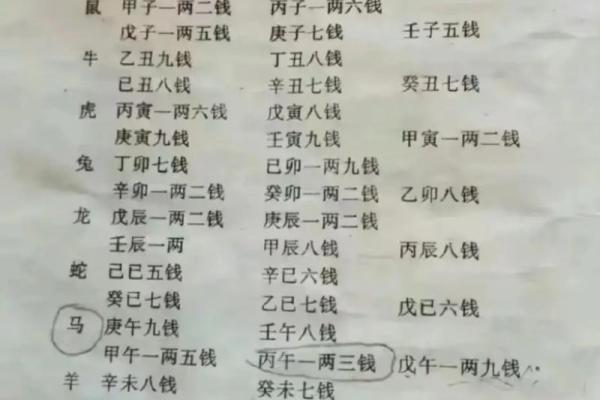 鼠 甲子一两二钱 丙子一两六钱
戊子一两五钱 庚子七钱 壬子五钱
牛 乙丑九钱 丁丑八钱
己丑八钱 辛丑七钱 癸丑七钱
虎 丙寅一两六钱 戊寅八钱
庚寅九钱 壬寅九钱 甲寅一两二钱
兔 丁卯七钱 己卯一两九钱
辛卯一两二钱 癸卯一两二钱 乙卯八钱
龙 戊辰一两二钱 庚辰一两二钱
壬辰一两 甲辰八钱 丙辰八钱
蛇 己巳五钱 辛巳六钱
癸巳七钱 乙巳七钱 戊巳六钱
马 庚午九钱 壬午八钱
甲午一两五钱 丙午一两三钱 戊午一两九钱
羊 辛未八钱 癸未七钱